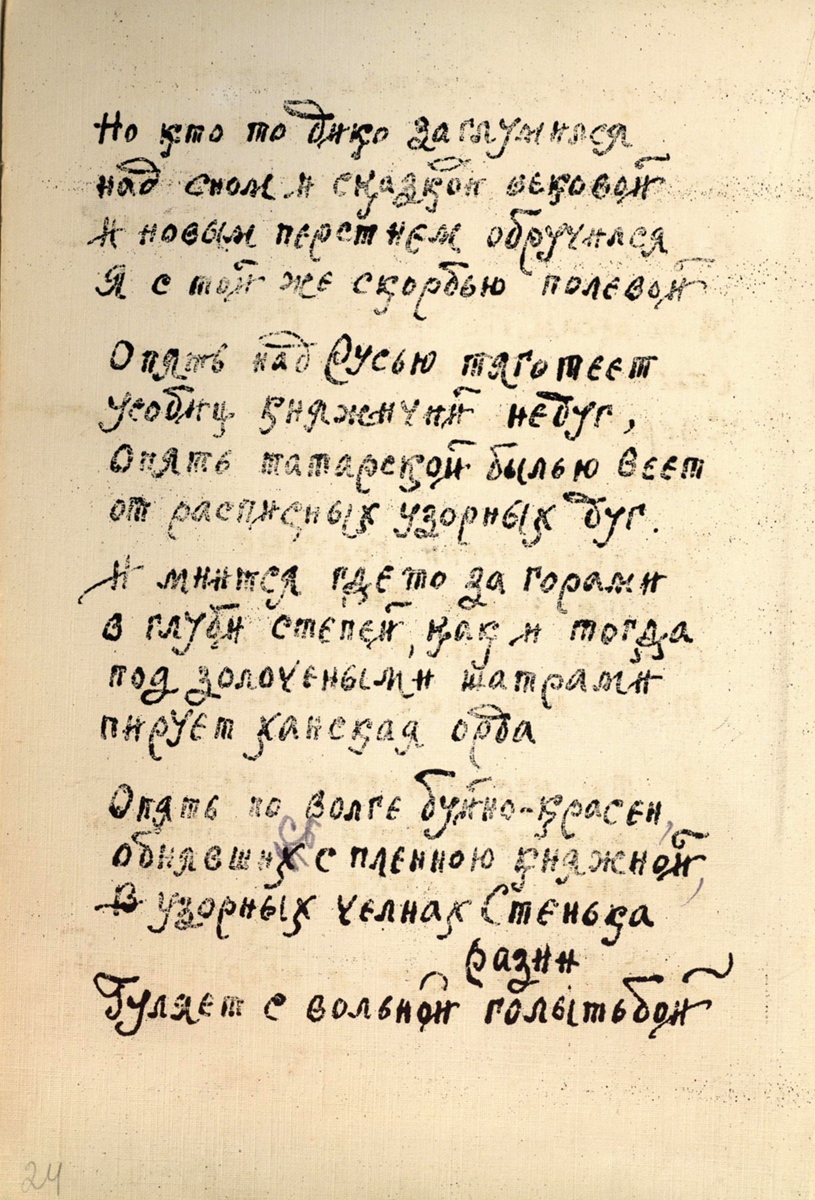 Но кто то дико заглумился
над сном и сказкой вековой
И новым перстнем обручился
Я с той же скорбью полевой
Опять над Русью тяготеет
усобиц княжичий недуг,
Опять татарской былью веет
от расписных узорных дуг.
И мнится где то за горами
в глуби степей, как и тогда
под золочеными шатрами
пирует ханская орда
Опять по волге буйно-красен,
обнявшись с пленною княжной,
В узорных челнах Стенька
разин
Гуляет с вольной голытьбой
24